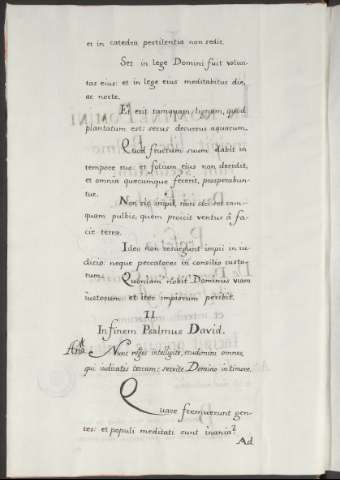 et in catedra pestilentiæ non sedit.
Set in lege Domini fuit volun
tas eius: et in lege eius meditabitur die,
ac nocte.
Et erit tamquam lignum, quod
plantatum est: secus decursus aquarum.
Quod fructum suum dabit in
tempore suo: et folium eius non decidet,
et omnia quecumque faciet, prosperabun-
tur.
Non sic impii, non sic: set tam-
quam pulbis, quem proicit ventus á fa-
cie terræ.
Ideo non resurgunt impii in iu-
dicio: neque peccatores in consilio iusto-
rum.
Quoniam nobit Dominus viam
iustorum: et iter impiorum peribit.
II
In finem Psalmus David.
Añã. Nunc reges intelligite, erudimini omnes,
qui iudicatis terram: servite Domino in timore.
Quare fremuerunt gen-
tes: et populi meditati sunt inania?
Ad